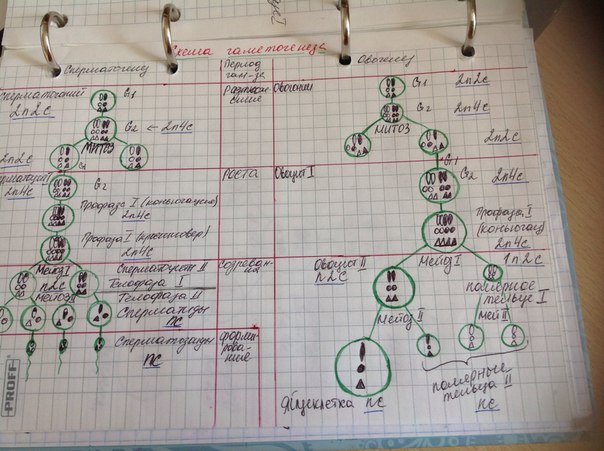 Схема гаметогенеза
Сперматогенез
Период
гам-за
Овогенез
Сперматогоний
2n2c
G1
G2 ← 2n4c
МИТОЗ
2n2c
G1
Размно-
жение
Овогонии
G1
2n2c
G2
2n4c
МИТОЗ
2n2c
G1
2n4c
G2
Профаза I (конъюгация)
2n4c
Профаза I (кроссинговер)
2n4c
роста
Овоцит I
G2
2n4c
Профаза I
(конъюгац)
2n4c
Мейоз I
n2c
Мейоз II
Сперматоцит II
Телофаза I
Телофаза II
Сперматиды
nc
Созрева-
ния
Овоцит II
n2c
Мейоз I
1n2c
полярное
тельце I
Мейоз II
мей II
Сперматозоиды
nc
форми-
рова-
ние
Яйцеклетка nc
полярные
тельца II
nc
PROFF